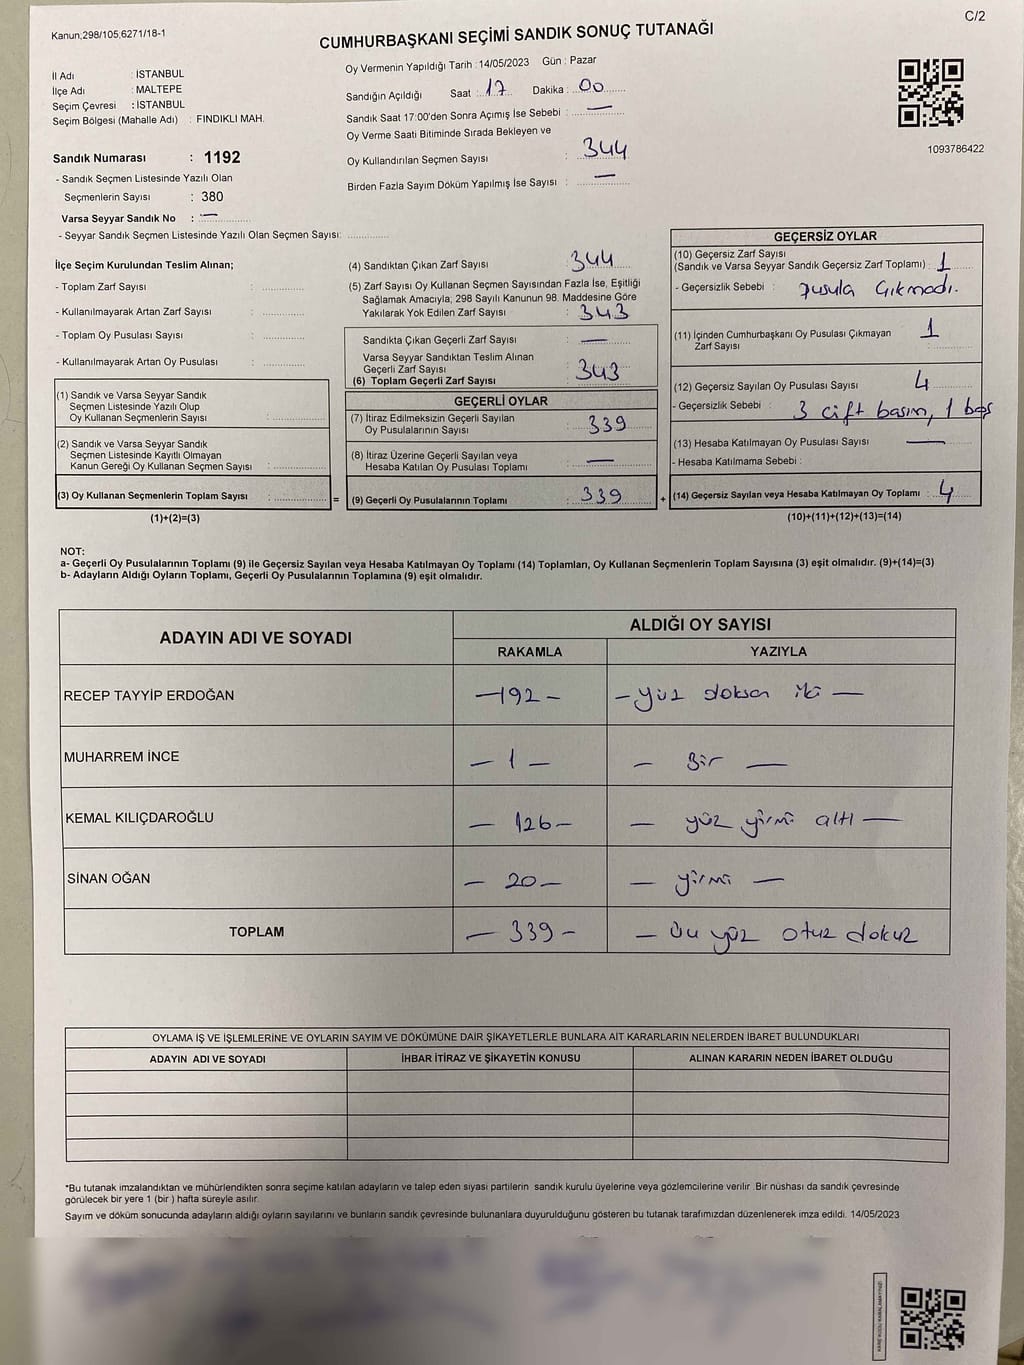 Kanun,298/105,6271/18-1
C/2
CUMHURBAŞKANI SEÇİMİ SANDIK SONUÇ TUTANAĞI
İl Adı : İSTANBUL
İlçe Adı : MALTEPE
Seçim Çevresi : İSTANBUL
Seçim Bölgesi (Mahalle Adı) : FINDIKLI MAH.
Oy Vermenin Yapıldığı Tarih : 14/05/2023 Gün : Pazar
Sandığın Açıldığı Saat : 17 Dakika : 00
Sandık Saat 17:00'den Sonra Açımış İse Sebebi : —
Oy Verme Saati Bitiminde Sırada Bekleyen ve
Oy Kullandırılan Seçmen Sayısı : 344
Birden Fazla Sayım Döküm Yapılmış İse Sayısı : —
1093786422
Sandık Numarası : 1192
- Sandık Seçmen Listesinde Yazılı Olan
Seçmenlerin Sayısı : 380
Varsa Seyyar Sandık No : —
- Seyyar Sandık Seçmen Listesinde Yazılı Olan Seçmen Sayısı:
İlçe Seçim Kurulundan Teslim Alınan;
- Toplam Zarf Sayısı :
- Kullanılmayarak Artan Zarf Sayısı :
- Toplam Oy Pusulası Sayısı :
- Kullanılmayarak Artan Oy Pusulası :
(1) Sandık ve Varsa Seyyar Sandık
Seçmen Listesinde Yazılı Olup
Oy Kullanan Seçmenlerin Sayısı :
(2) Sandık ve Varsa Seyyar Sandık
Seçmen Listesinde Kayıtlı Olmayan
Kanun Gereği Oy Kullanan Seçmen Sayısı :
(3) Oy Kullanan Seçmenlerin Toplam Sayısı : =
(1)+(2)=(3)
(4) Sandıktan Çıkan Zarf Sayısı : 344
(5) Zarf Sayısı Oy Kullanan Seçmen Sayısından Fazla İse, Eşitliği
Sağlamak Amacıyla, 298 Sayılı Kanunun 98. Maddesine Göre
Yakılarak Yok Edilen Zarf Sayısı : 343
Sandıkta Çıkan Geçerli Zarf Sayısı : —
Varsa Seyyar Sandıktan Teslim Alınan
Geçerli Zarf Sayısı
(6) Toplam Geçerli Zarf Sayısı : 343
GEÇERLİ OYLAR
(7) İtiraz Edilmeksizin Geçerli Sayılan
Oy Pusulalarının Sayısı : 339
(8) İtiraz Üzerine Geçerli Sayılan veya
Hesaba Katılan Oy Pusulası Toplamı : —
(9) Geçerli Oy Pusulalarının Toplamı : 339 +
GEÇERSİZ OYLAR
(10) Geçersiz Zarf Sayısı
(Sandık ve Varsa Seyyar Sandık Geçersiz Zarf Toplamı) : 1
- Geçersizlik Sebebi : Pusula Çıkmadı.
(11) İçinden Cumhurbaşkanı Oy Pusulası Çıkmayan
Zarf Sayısı : 1
(12) Geçersiz Sayılan Oy Pusulası Sayısı : 4
- Geçersizlik Sebebi : 3 çift basım, 1 boş
(13) Hesaba Katılmayan Oy Pusulası Sayısı : —
- Hesaba Katılmama Sebebi :
(14) Geçersiz Sayılan veya Hesaba Katılmayan Oy Toplamı : 4
(10)+(11)+(12)+(13)=(14)
NOT:
a- Geçerli Oy Pusulalarının Toplamı (9) ile Geçersiz Sayılan veya Hesaba Katılmayan Oy Toplamı (14) Toplamları, Oy Kullanan Seçmenlerin Toplam Sayısına (3) eşit olmalıdır. (9)+(14)=(3)
b- Adayların Aldığı Oyların Toplamı, Geçerli Oy Pusulalarının Toplamına (9) eşit olmalıdır.
ADAYIN ADI VE SOYADI
ALDIĞI OY SAYISI
RAKAMLA YAZIYLA
RECEP TAYYİP ERDOĞAN — 192 — — yüz doksan iki —
MUHARREM İNCE — 1 — — Bir —
KEMAL KILIÇDAROĞLU — 126 — — yüz yirmi altı —
SİNAN OĞAN — 20 — — yirmi —
TOPLAM — 339 — — üç yüz otuz dokuz
OYLAMA İŞ VE İŞLEMLERİNE VE OYLARIN SAYIM VE DÖKÜMÜNE DAİR ŞİKAYETLERLE BUNLARA AİT KARARLARIN NELERDEN İBARET BULUNDUKLARI
ADAYIN ADI VE SOYADI İHBAR İTİRAZ VE ŞİKAYETİN KONUSU ALINAN KARARIN NEDEN İBARET OLDUĞU
*Bu tutanak imzalandıktan ve mühürlendikten sonra seçime katılan adayların ve talep eden siyasi partilerin sandık kurulu üyelerine veya gözlemcilerine verilir .Bir nüshası da sandık çevresinde
görülecek bir yere 1 (bir ) hafta süreyle asılır.
Sayım ve döküm sonucunda adayların aldığı oyların sayılarını ve bunların sandık çevresinde bulunanlara duyurulduğunu gösteren bu tutanak tarafımızdan düzenlenerek imza edildi. 14/05/2023